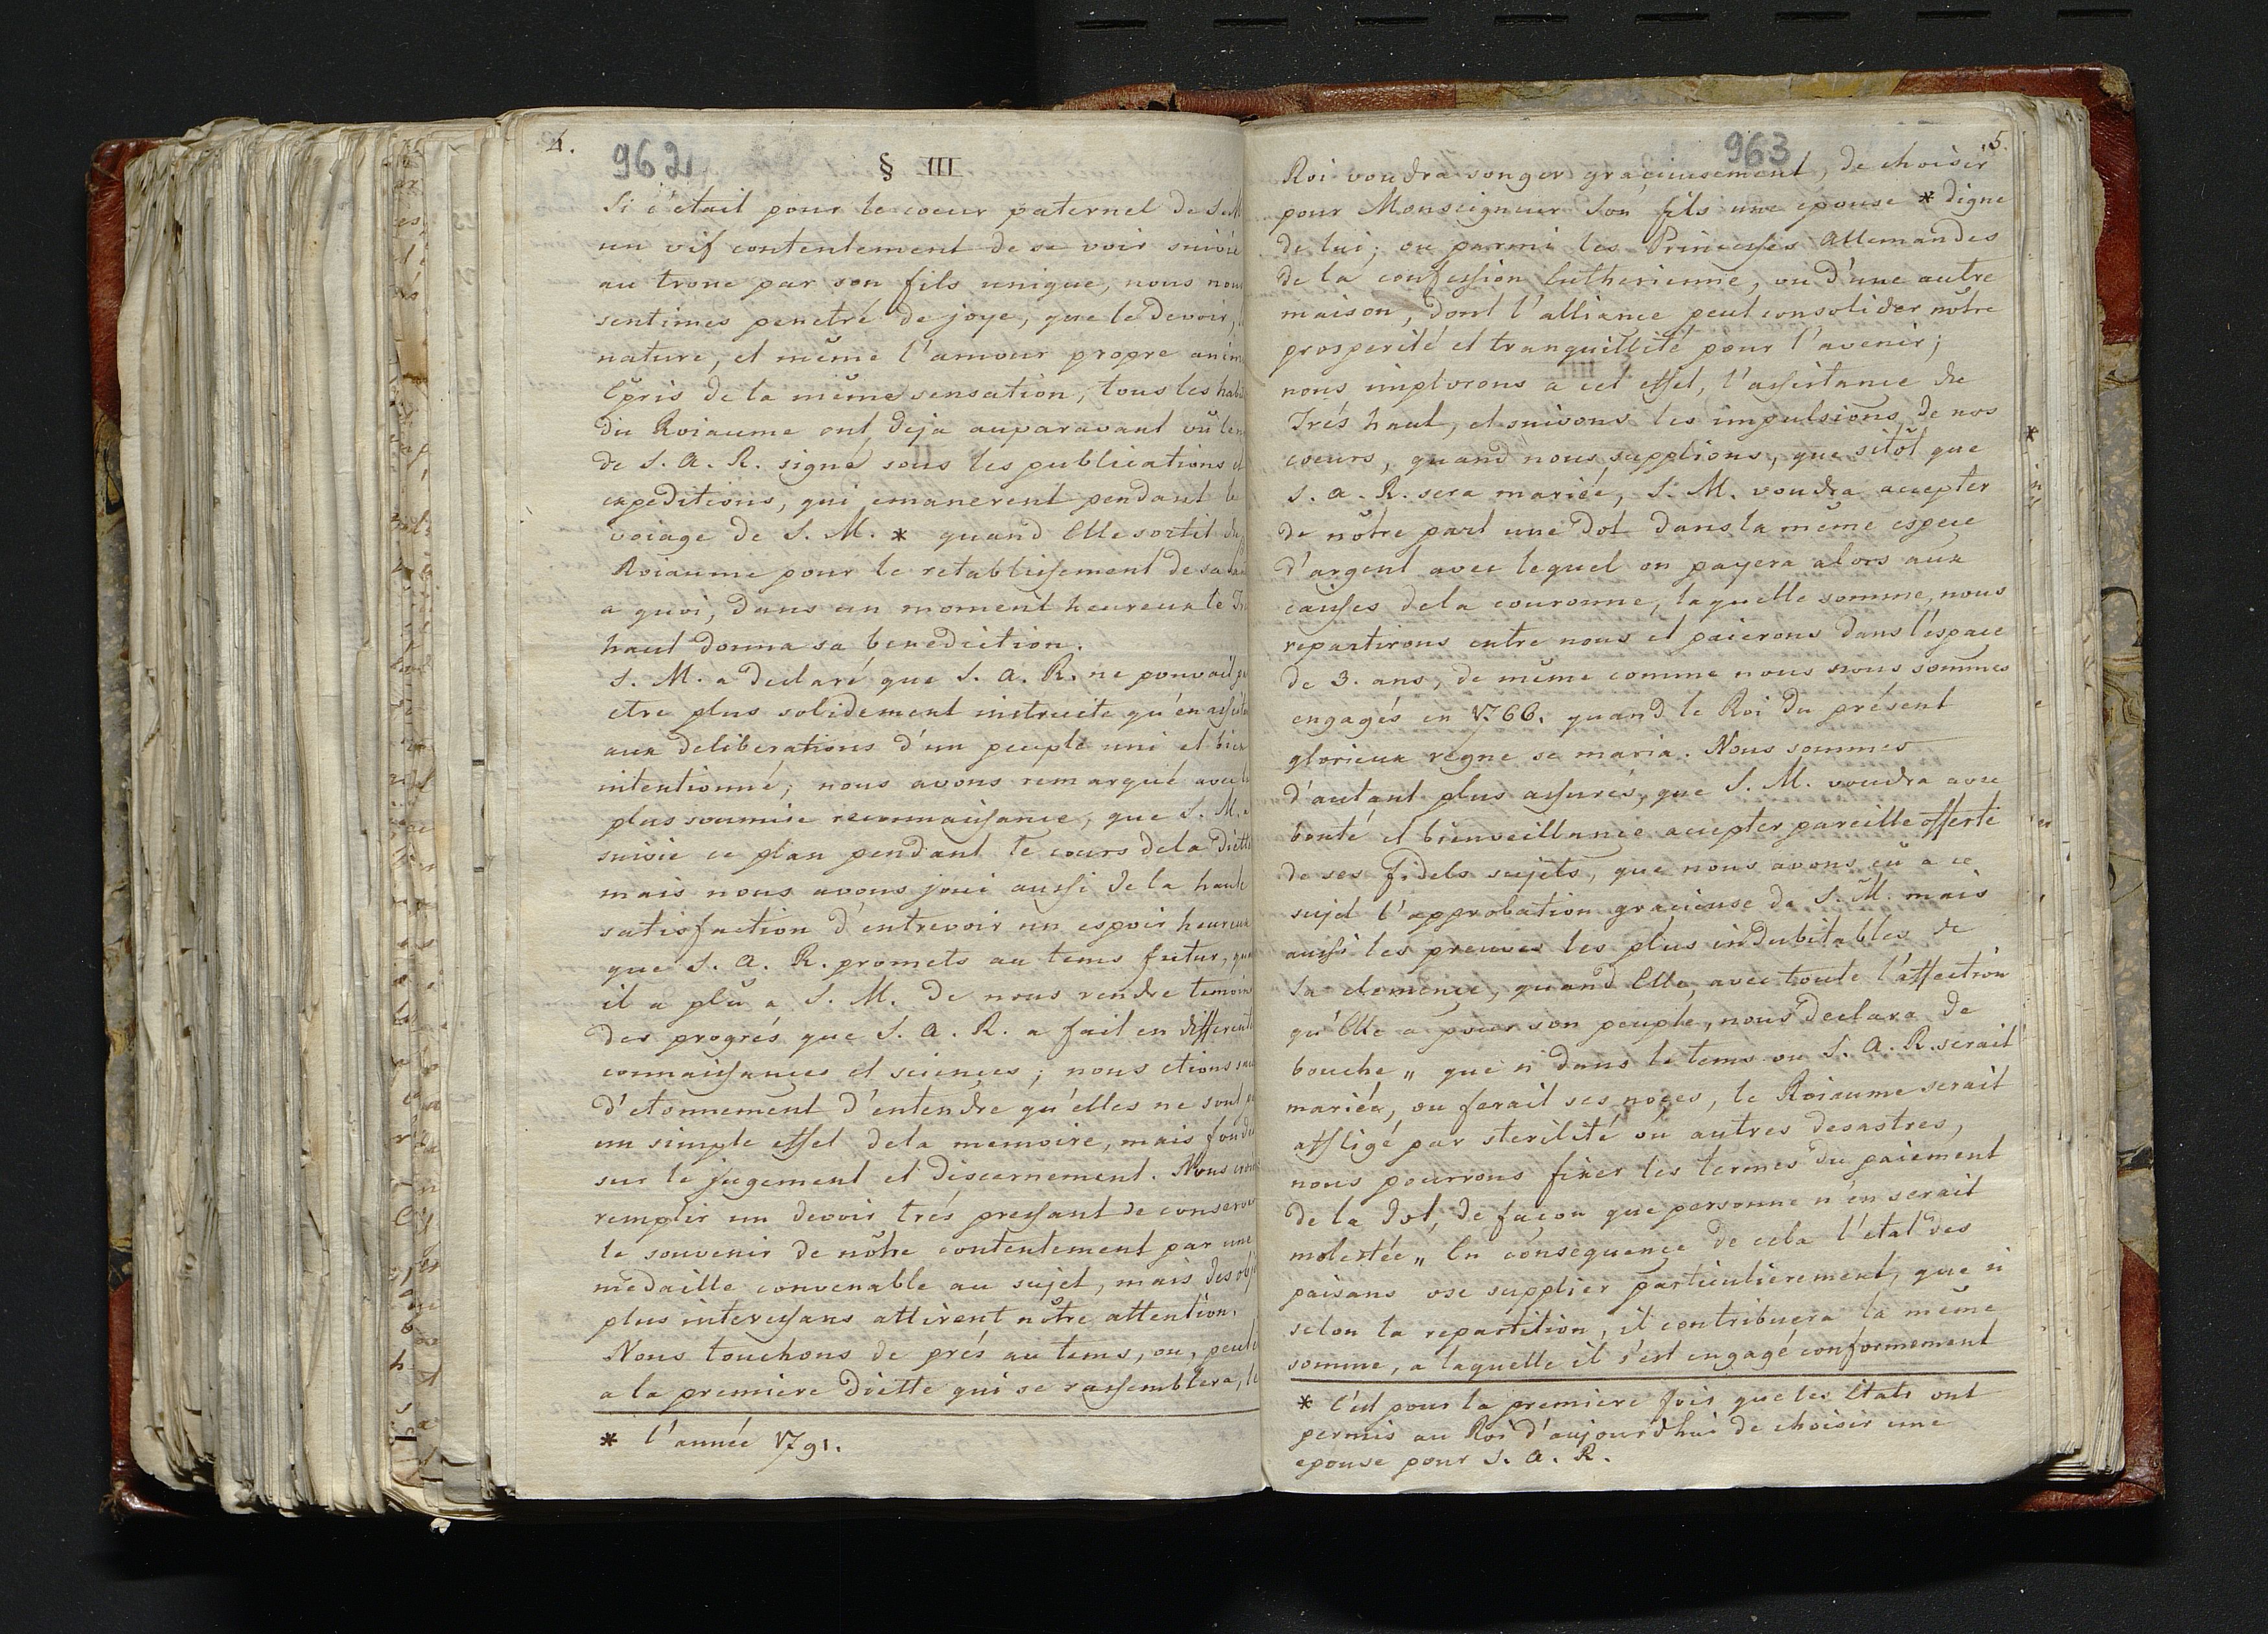 4.
962
§ III
Si c'etait pour le coeur paternel de S. M.
un vif contentement de se voir suivie
au trone par son fils unique, nous nous
sentimes penetré de joye, que le devoir,
nature, et même l'amour propre anim
Epris de la même sensation, tous les hab
du Roiaume ont deja auparavant vû
de S. A. R. signé sous les publications et
expeditions, qui emanerent pendant le
voiage de S. M. * quand Elle sortit du
Roiaume pour le retablissement de sa
a quoi, dans un moment heureux le
haut donna sa benediction.
S. M. a declaré que S. A. R. ne pouvait
etre plus solidement instruite qu'en
aux deliberations d'un peuple uni et bien
intentionné; nous avons remarqué avec
plus soumise reconnaissance, que S. M.
suivie ce plan pendant le cours dela Diette
mais nous avons joui aussi de la haute
satisfaction d'entrevoir un espoir heureux
que S. A. R. promets au tems futur,
il a plû a S. M. de nous rendre temoins
des progrés que S. A. R. a fait en differents
connaissances et sciences; nous etions
d'etonnement d'entendre qu'elles ne sont
un simple effet dela memoire, mais
sur le jugement et discernement. Nous
remplir un devoir trés pressant de conserver
le souvenir de nôtre contentement par une
medaille convenable au sujet, mais des
plus interessans attirent nôtre attention.
Nous touchons de prés au tems, ou,
a la premiere diette qui se rassemblera, le
* l'année 1791.
963
5.
Roi voudra songer graçieusement, de choisir
pour Monseigneur Son fils une epouse * digne
de lui; ou parmi les Princesses Allemandes
de la confession lutherienne, ou d'une autre
maison, dont l'alliance peut consolider nôtre
prosperité et tranquillité pour l'avenir;
nous implorons a cet effet, l'assistance du
Trés haut, et suivons les impulsions de nos
coeurs, quand nous supplions, que sitôt que
S. A. R. sera mariée, S. M. voudra accepter
de nôtre part une dot dans la même espece
d'argent avec lequel on payera alors aux
caisses dela couronne, laquelle somme, nous
repartirons entre nous et paierons dans l'espace
de 3. ans, de même comme nous nous sommes
engagés en 1766. quand le Roi du présent
glorieux regne se maria. Nous sommes
d'autant plus assurés, que S. M. voudra avec
bonté et bienveillance accepter pareille offerte
de ses fidels sujets, que nous avons eû a ce
sujet l'approbation gracieuse de S. M. mais
aussi les preuves les plus indubitables de
Sa clemence, quand Elle, avec toute l'affection
qu'Elle a pour son peuple, nous declara de
bouche „ que si dans le tems ou S. A. R. serait
mariée, ou ferait ses noçes, le Roiaume serait
affligé par sterilité ou autres desastres,
nous pourrons fixer les termes du paiement
de la dot, de façon que personne n'en serait
molestée „ En consequence de cela l'etat des
paisans ose supplier particulierement, que si
selon la repartition, il contribuera la même
somme, a laquelle il s'est engagé conformement
* C'est pour la premiere fois que les Etats ont
permis au Roi d'aujourdhui de choisir une
epouse pour S. A. R.